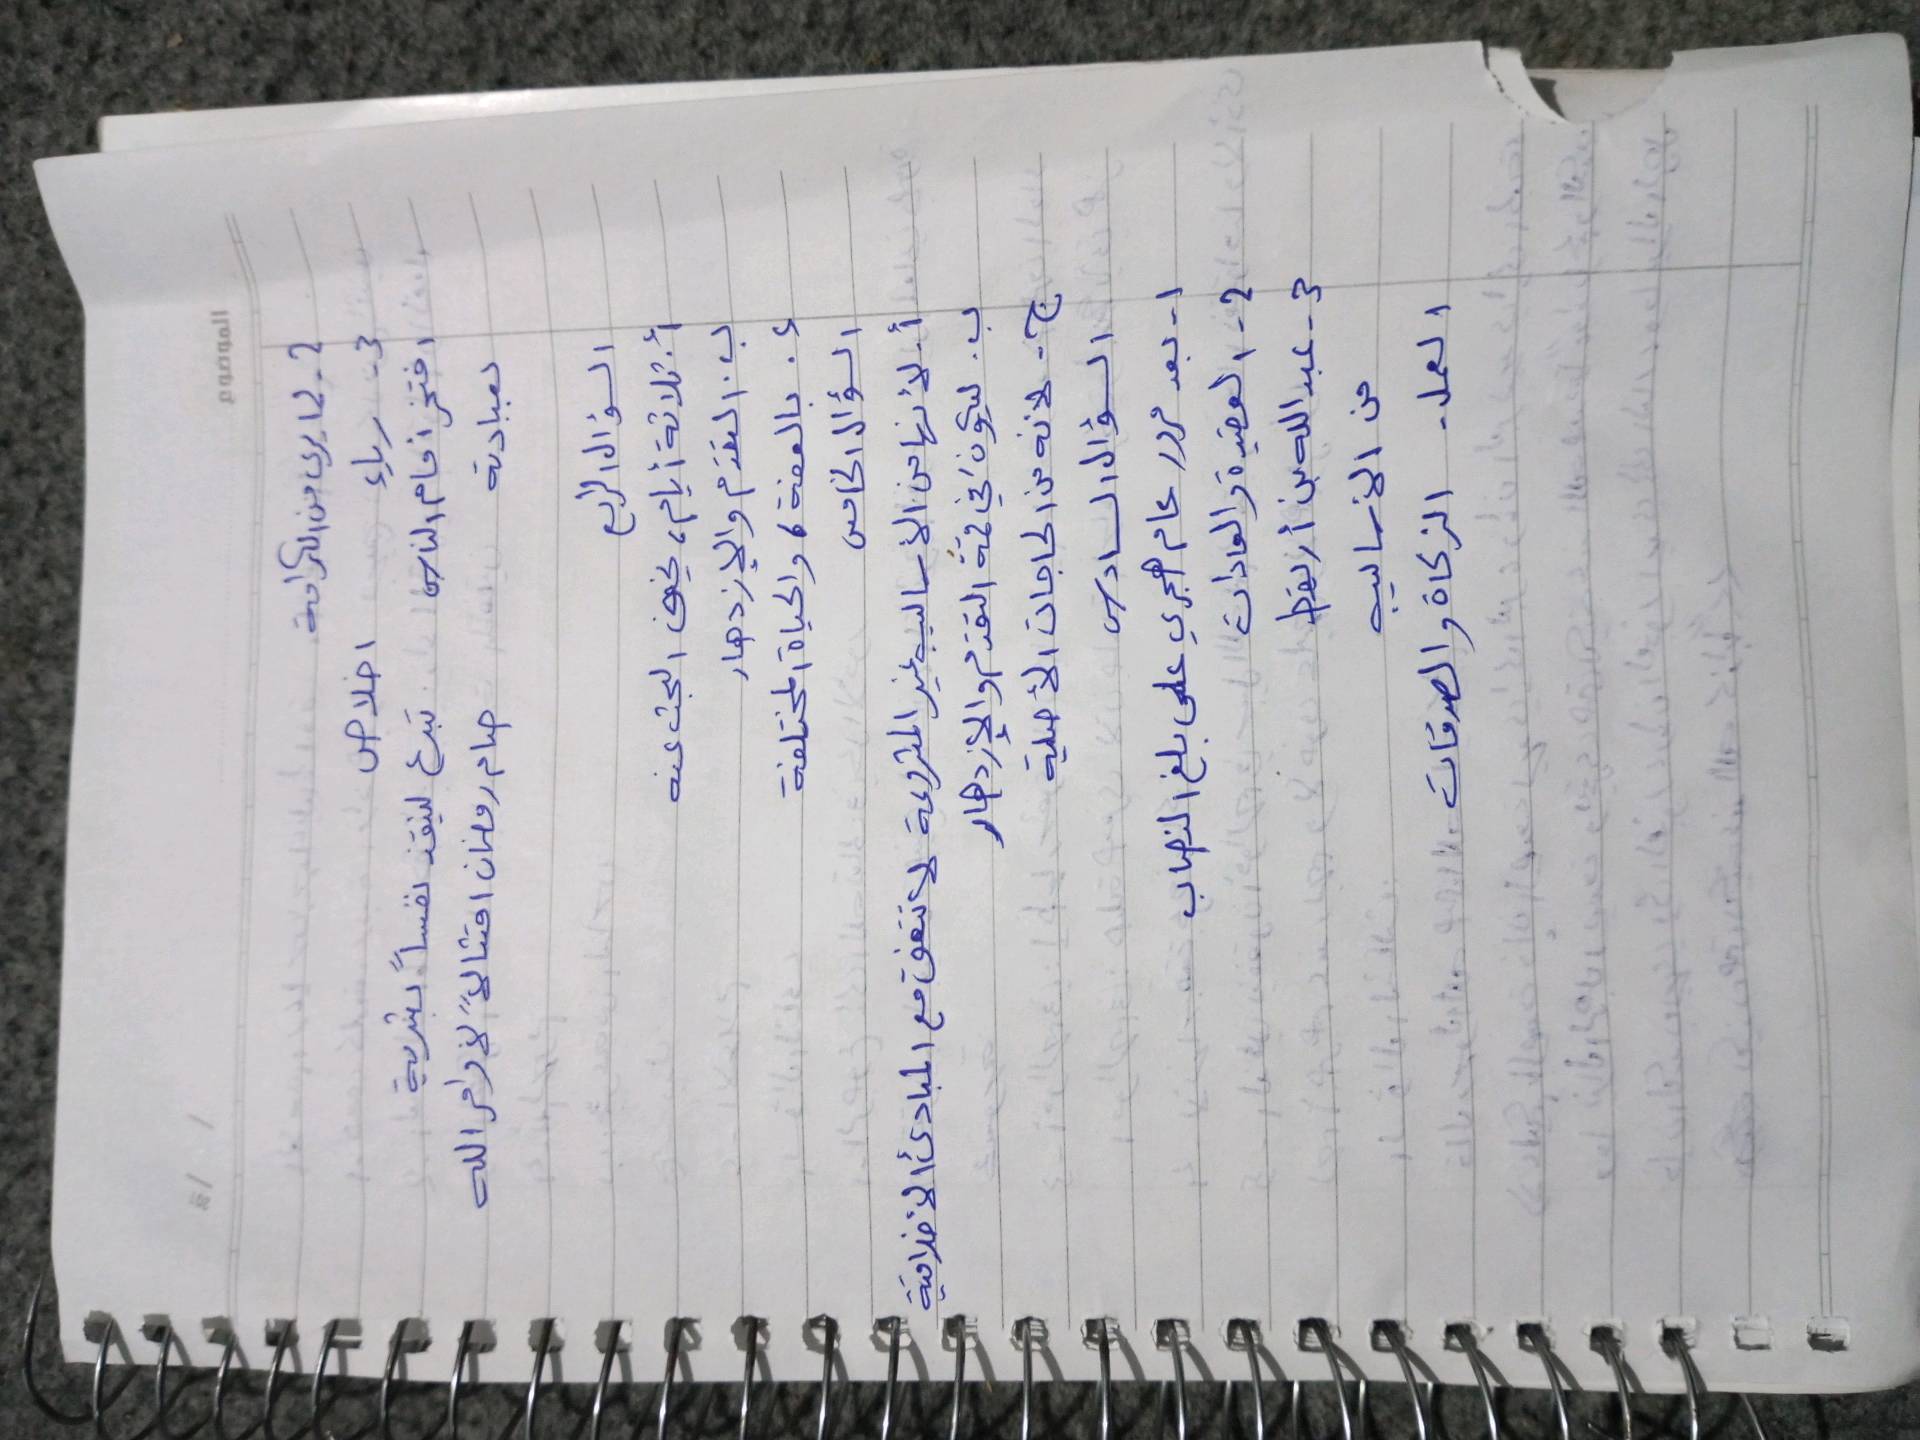 2- لما يرى من الكرامة
3- رياء    اخلاص
افتخر أمام الناس    تبرع لينقذ نفساً بشرية
بعبادته    صام رمضان امتثالاً لأوامر الله
السؤال الرابع
أ. ثلاثة أيام، يخفف البحث عنه
ب. التقدم والإزدهار
ء. بالعفة، والحياة المختلفة
السؤال الخامس
أ- لأنها من الأساليب غير المشروعة لا تتفق مع المبادئ الأخلاقية
ب. ليكون في قمة التقدم والإزدهار
ج- لأنه من الحاجات الأصلية
السؤال السادس
1- بعد مرور عام هجري على بلغ النصاب
2- العقيدة والعادات
3- عبدالله بن أريقط
من الأساليب
العمل - الزكاة والصدقات